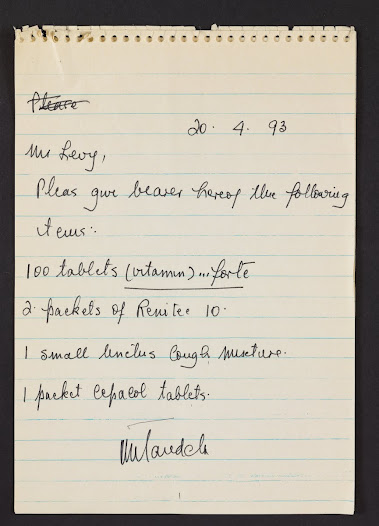 Please
20. 4. 93
Mr Levy,
Pleas give bearer hereof the following
items:
100 tablets (vitamin)...forte
2 packets of Renitec 10.
1 small linctus cough mixture.
1 packet cepacol tablets.
NMandela